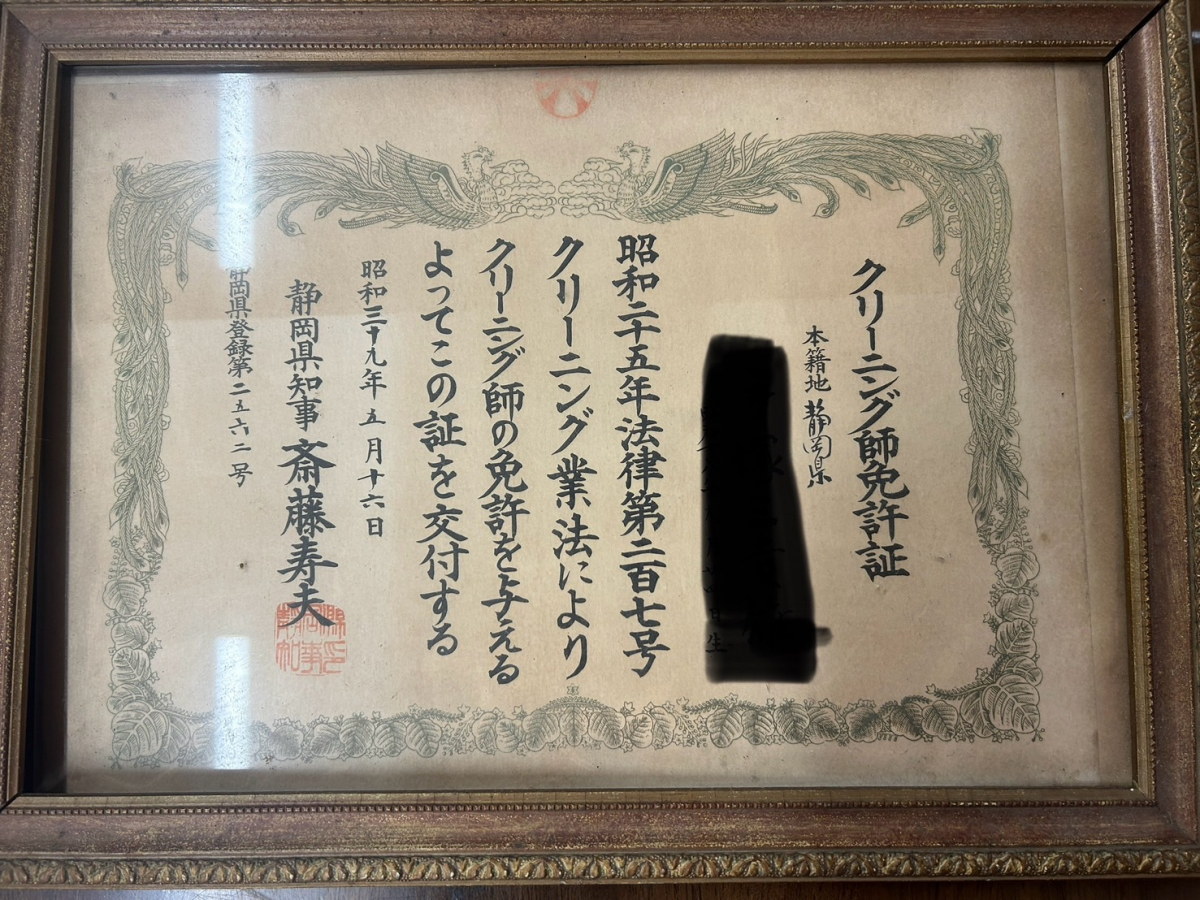 クリーニング師免許証
本籍地 静岡県
生
昭和二十五年法律第二百七号
クリーニング業法により
クリーニング師の免許を与える
よってこの証を交付する
昭和三十九年五月十六日
静岡県知事 斎藤寿夫
静岡県登録第二五六二号